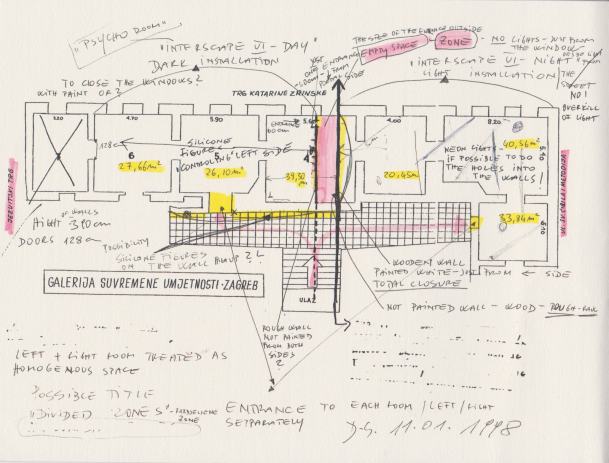 "PSYCHO ROOM"
"INTERSCAPE VI - DAY"
DARK INSTALLATION
TO CLOSE THE WINDOWS?
WITH PAINT OR?
THE SIZE OF THE ENTRANCE OUTSIDE
EMPTY SPACE - ZONE - NO LIGHTS - JUST FROM
THE WINDOW
"INTERSCAPE VI - NIGHT"
LIGHT INSTALLATION
THE
STREET
NO!
OVERKILL
OF LIGHT
TRG KATARINE ZRINSKE
JEZUITSKI TRG
3.20
4.70
5.90
5.60
4.00
8.20
128
SILICONE
FIGURE
"CONTROLING" LEFT SIDE
6
27,66m²
26,10m²
39,50
m²
20,45m
40,56m²
33,84m²
5.90
6.10
NEON LIGHTS -
IF POSSIBLE TO DO
THE HOLES INTO
THE WALLS!
HIGHT OF WALLS 390cm
DOORS 128cm
POSSIBILITY
SILICONE FIGURES
ON THE WALL
GALERIJA SUVREMENE UMJETNOSTI · ZAGREB
ULAZ
WOODEN WALL
PAINTED WHITE - JUST FROM ← SIDE
TOTAL CLOSURE
NOT PAINTED WALL - WOOD - ROUGH - RAW
ROUGH WALL
NOT PAINTED
FROM BOTH
SIDES
?
LEFT + RIGHT ROOM TREATED AS
HOMOGENOUS SPACE
POSSIBLE TITLE
"DIVIDED ZONES" -
ZONE
ENTRANCE TO EACH ROOM / LEFT / RIGHT
SEPARATELY
11.01.1998